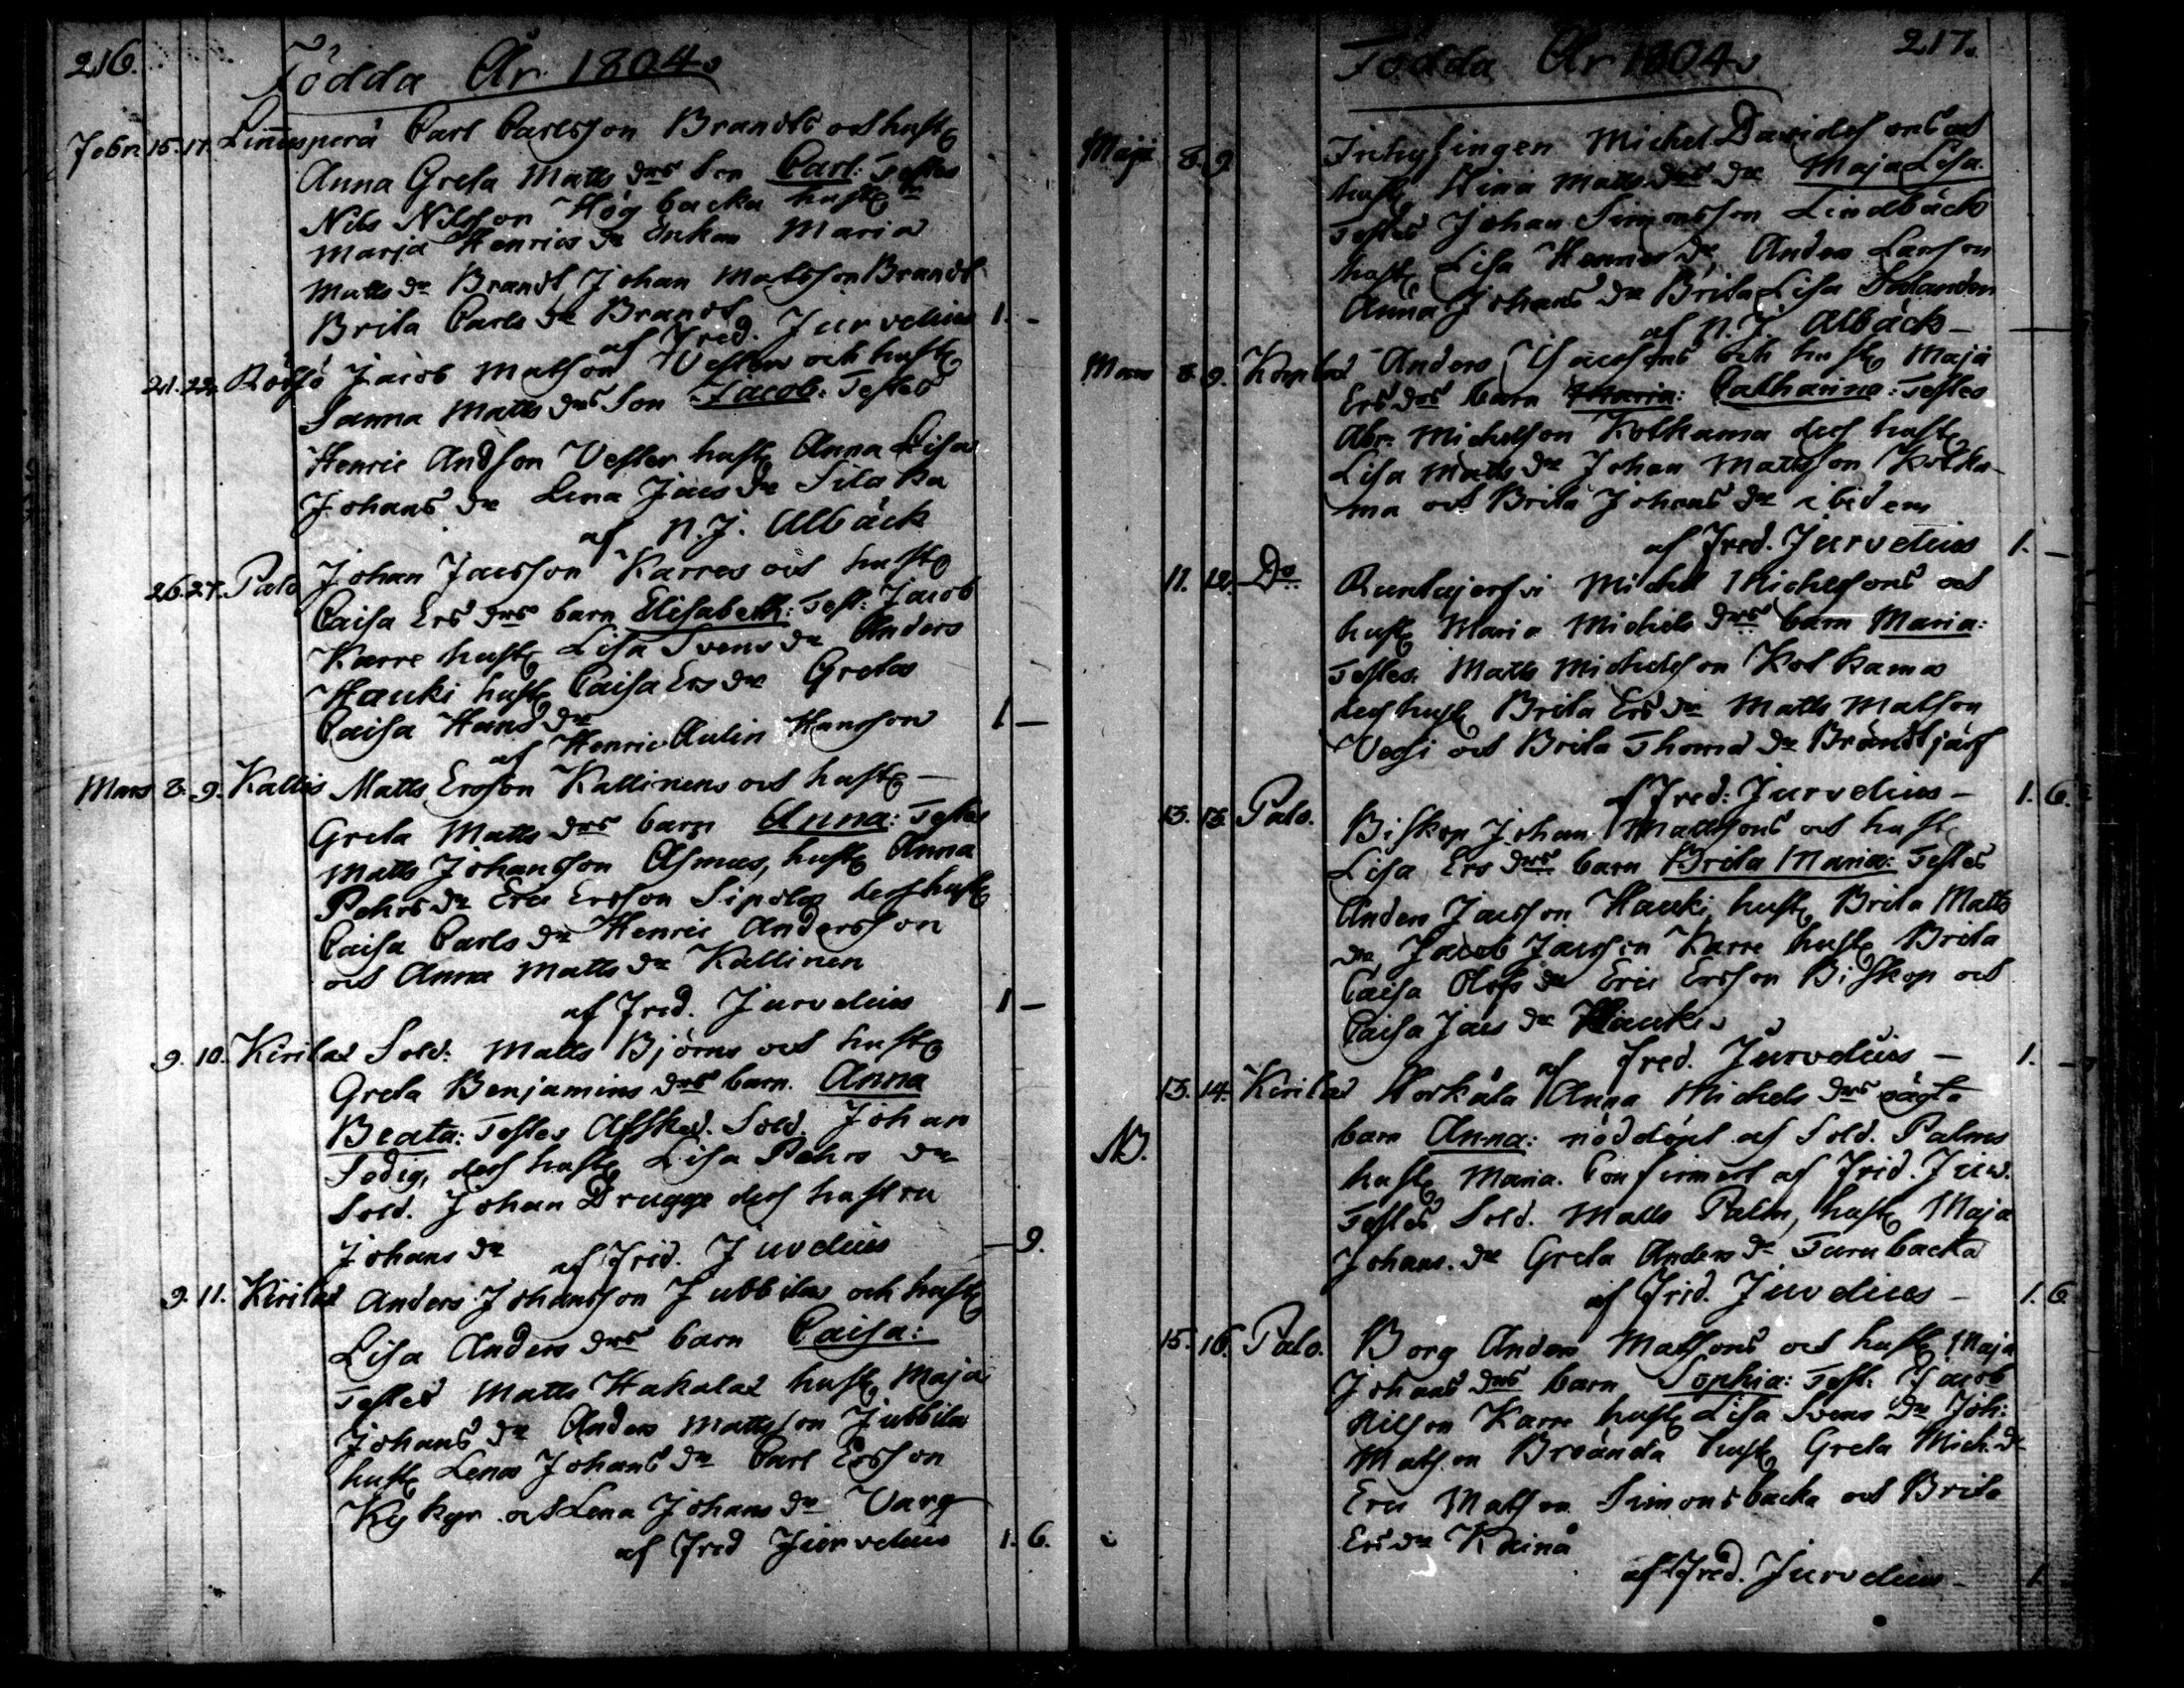 216.
Födda År 1804.
Febr. 15. 17. Linnusperä Carl Carlsson Brandts och hustr
Anna Greta Matts drs Son Carl: Testes
Nils Nilsson Högbacka hustr
Marja Henrics dr Enkan Maria
Matts dr Brandt Johan Matsson Brandt
Brita Carls dr Brandt
af Fred. Jurvelius 1. -
21. 22. Rödsö Jacob Matson Vester och hustr
Sanna Matts drs Son Jacob: Testes
Henric Andsson Vester hustr Anna Lisa
Johans dr Lena Jacs dr Silaka
af N. J. Albäck
26. 27. Palo Johan Jacsson Karres och hustr
Caisa Ers drs barn Elisabeth: Test: Jacob
Karre hustr Lisa Svens dr Anders
Hauki hustr Caisa Ers dr Greta
Caisa Hans dr
af Henric Aulin Hansson 1 -
Mars 8. 9. Kallis Matts Ersson Kallinens och hustr -
Greta Matts drs barn Anna: Testes
Matts Johansson Asmus, hustr Anna
Pehrs dr Eric Ersson Sipola dess hustr
Caisa Carls dr Henric Andersson
och Anna Matts dr Kallinen
af Fred. Jurvelius 1 -
9. 10. Kirilax Sold: Matts Björns och hustr
Greta Benjamins drs barn. Anna
Beata: Testes Afsked. Sold. Johan
Sedig, dess hustr Lisa Pehrs dr
Sold. Johan Drugge dess hustru
Johans dr af Frid. Juvelius - 9.
9. 11. Kirilax Anders Johansson Jubbilas och hustr
Lisa Anders drs barn Caisa:
Testes Matts Hakalax hustr Maja
Johans dr Anders Mattsson Jubbila
hustr Lena Johans dr Carl Ersson
Kykyr och Lena Johans dr Varg
af Fred Jurvelius 1. 6.
Födda År 1804. 217.
Maji 8. 9. Michel Davidssons och
hustr Stina Matts drs dr Maja Lisa.
Testes Johan Simonsson Lindbäck
hustr Lisa Hennes dr Anders Larsson
Anna Johans dr Brita Lisa
af N. J. Albäck -
Mars 8. 9. Korplax Anders och hustr Maja
Ers drs barn Maria: Catharina: Testes
Abr: Michelsson Kolkama dess hustr
Lisa Matts dr Johan Mattsson Kolka-
ma och Brita Johans dr ibidem
af Fred. Jurvelius 1. -
11. 12. Do Runtujerfvi Michel Michelssons och
hustr Maria Michels drs barn Maria:
Testes: Matts Michelsson Kolkama
dess hustr Brita Ers dr Matts Matson
Vessi och Brita Thoma dr Brändtjärf
af Fred: Jurvelius - 1. 6.
13. 13. Palo. Biskop Johan Mattssons och hustr
Lisa Ers drs barn Brita Maria: Testes
Anders Jacsson Hauki, hustr Brita Matts
dr, Jacob Jacsson Karre hustr Brita
Caisa Olofs dr Eric Ersson Biskop och
Caisa Jacs dr Hauki
af Fred. Jurvelius - 1. -
13. 14. Kirilax Horkåla Anna Michels drs oägta
NB. barn Anna: nöddöpt af Sold. Palms
hustr Maria. Confirmert af Frid. Juv.
Testes Sold. Matts Palm, hustr Maja
Johans. dr Greta Anders dr Furubacka
af Frid. Juvelius - 1. 6.
15. 16. Palo. Borg Anders Matssons och hustr Maja
Johans drs barn Sophia: Test: Jacob
Nilsson Karre hustr Lisa Svens dr Joh:
Matsson Broända hustr Greta Mich. dr
Eric Matsson Simonsbacka och Brita
Ers dr Kainå
af Fred. Jurvelius - 1